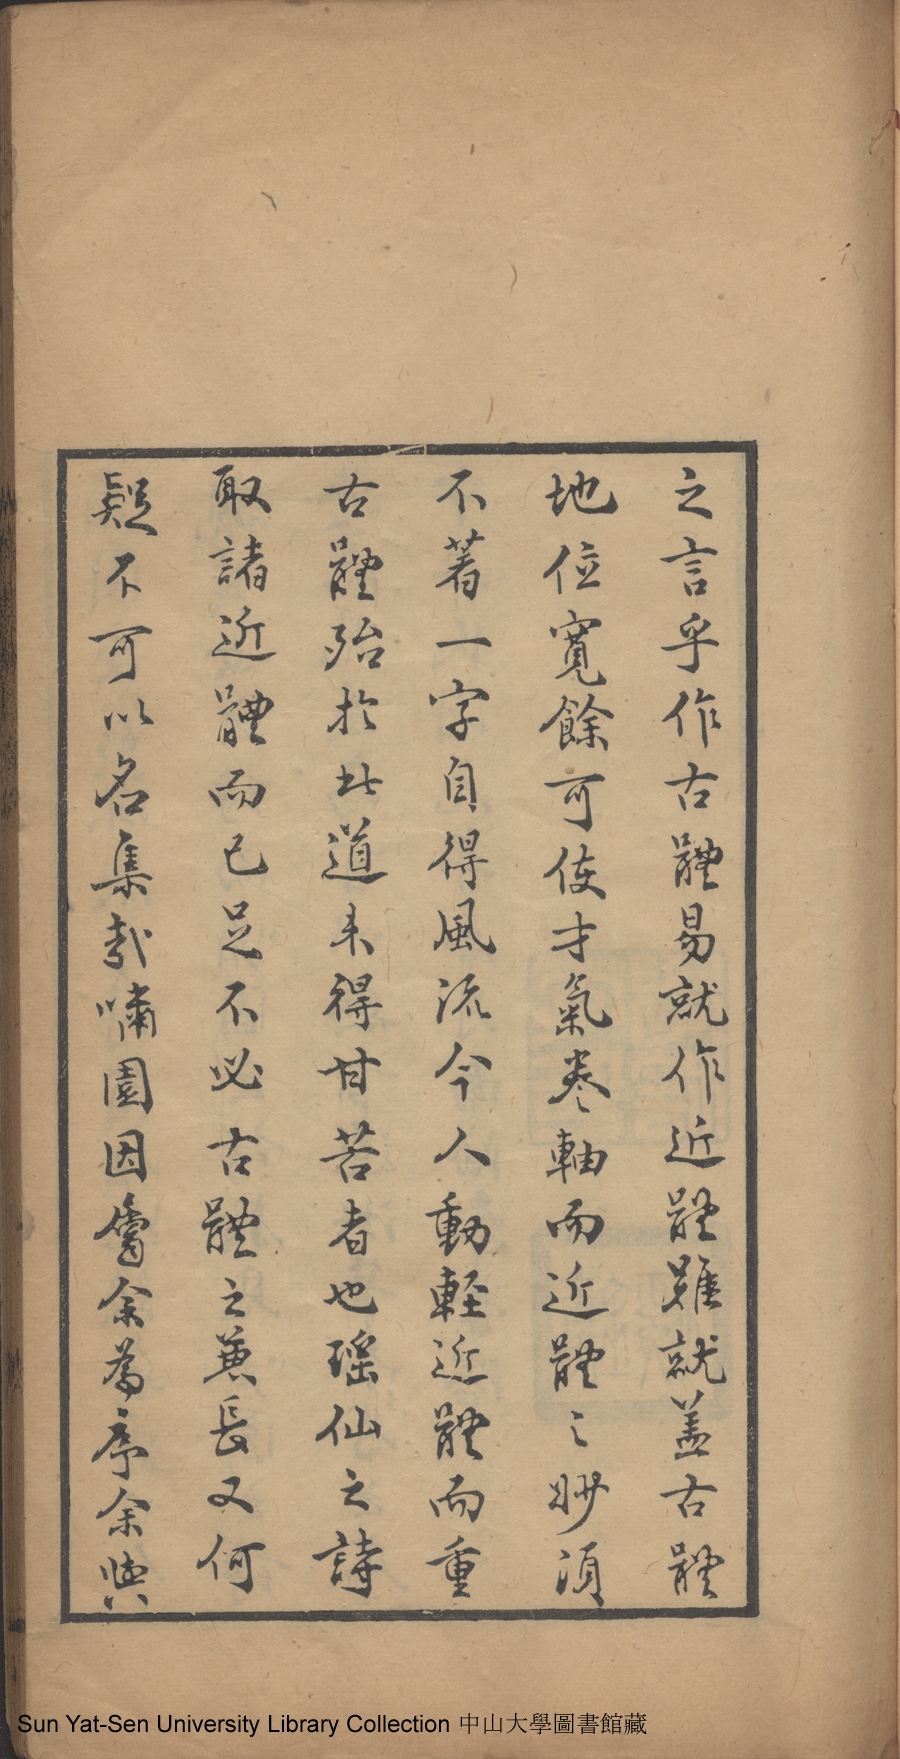 之言乎作古體易就作近體難就蓋古體
地位寬餘可使才氣卷軸而近體之妙須
不著一字自得風流今人動輕近體而重
古體殆於此道未得甘苦者也瑤仙之詩
取諸近體而已足不必古體之兼長又何
疑不可以名集哉嘯園因屬余為序余與
Sun Yat-Sen University Library Collection 中山大學圖書館藏